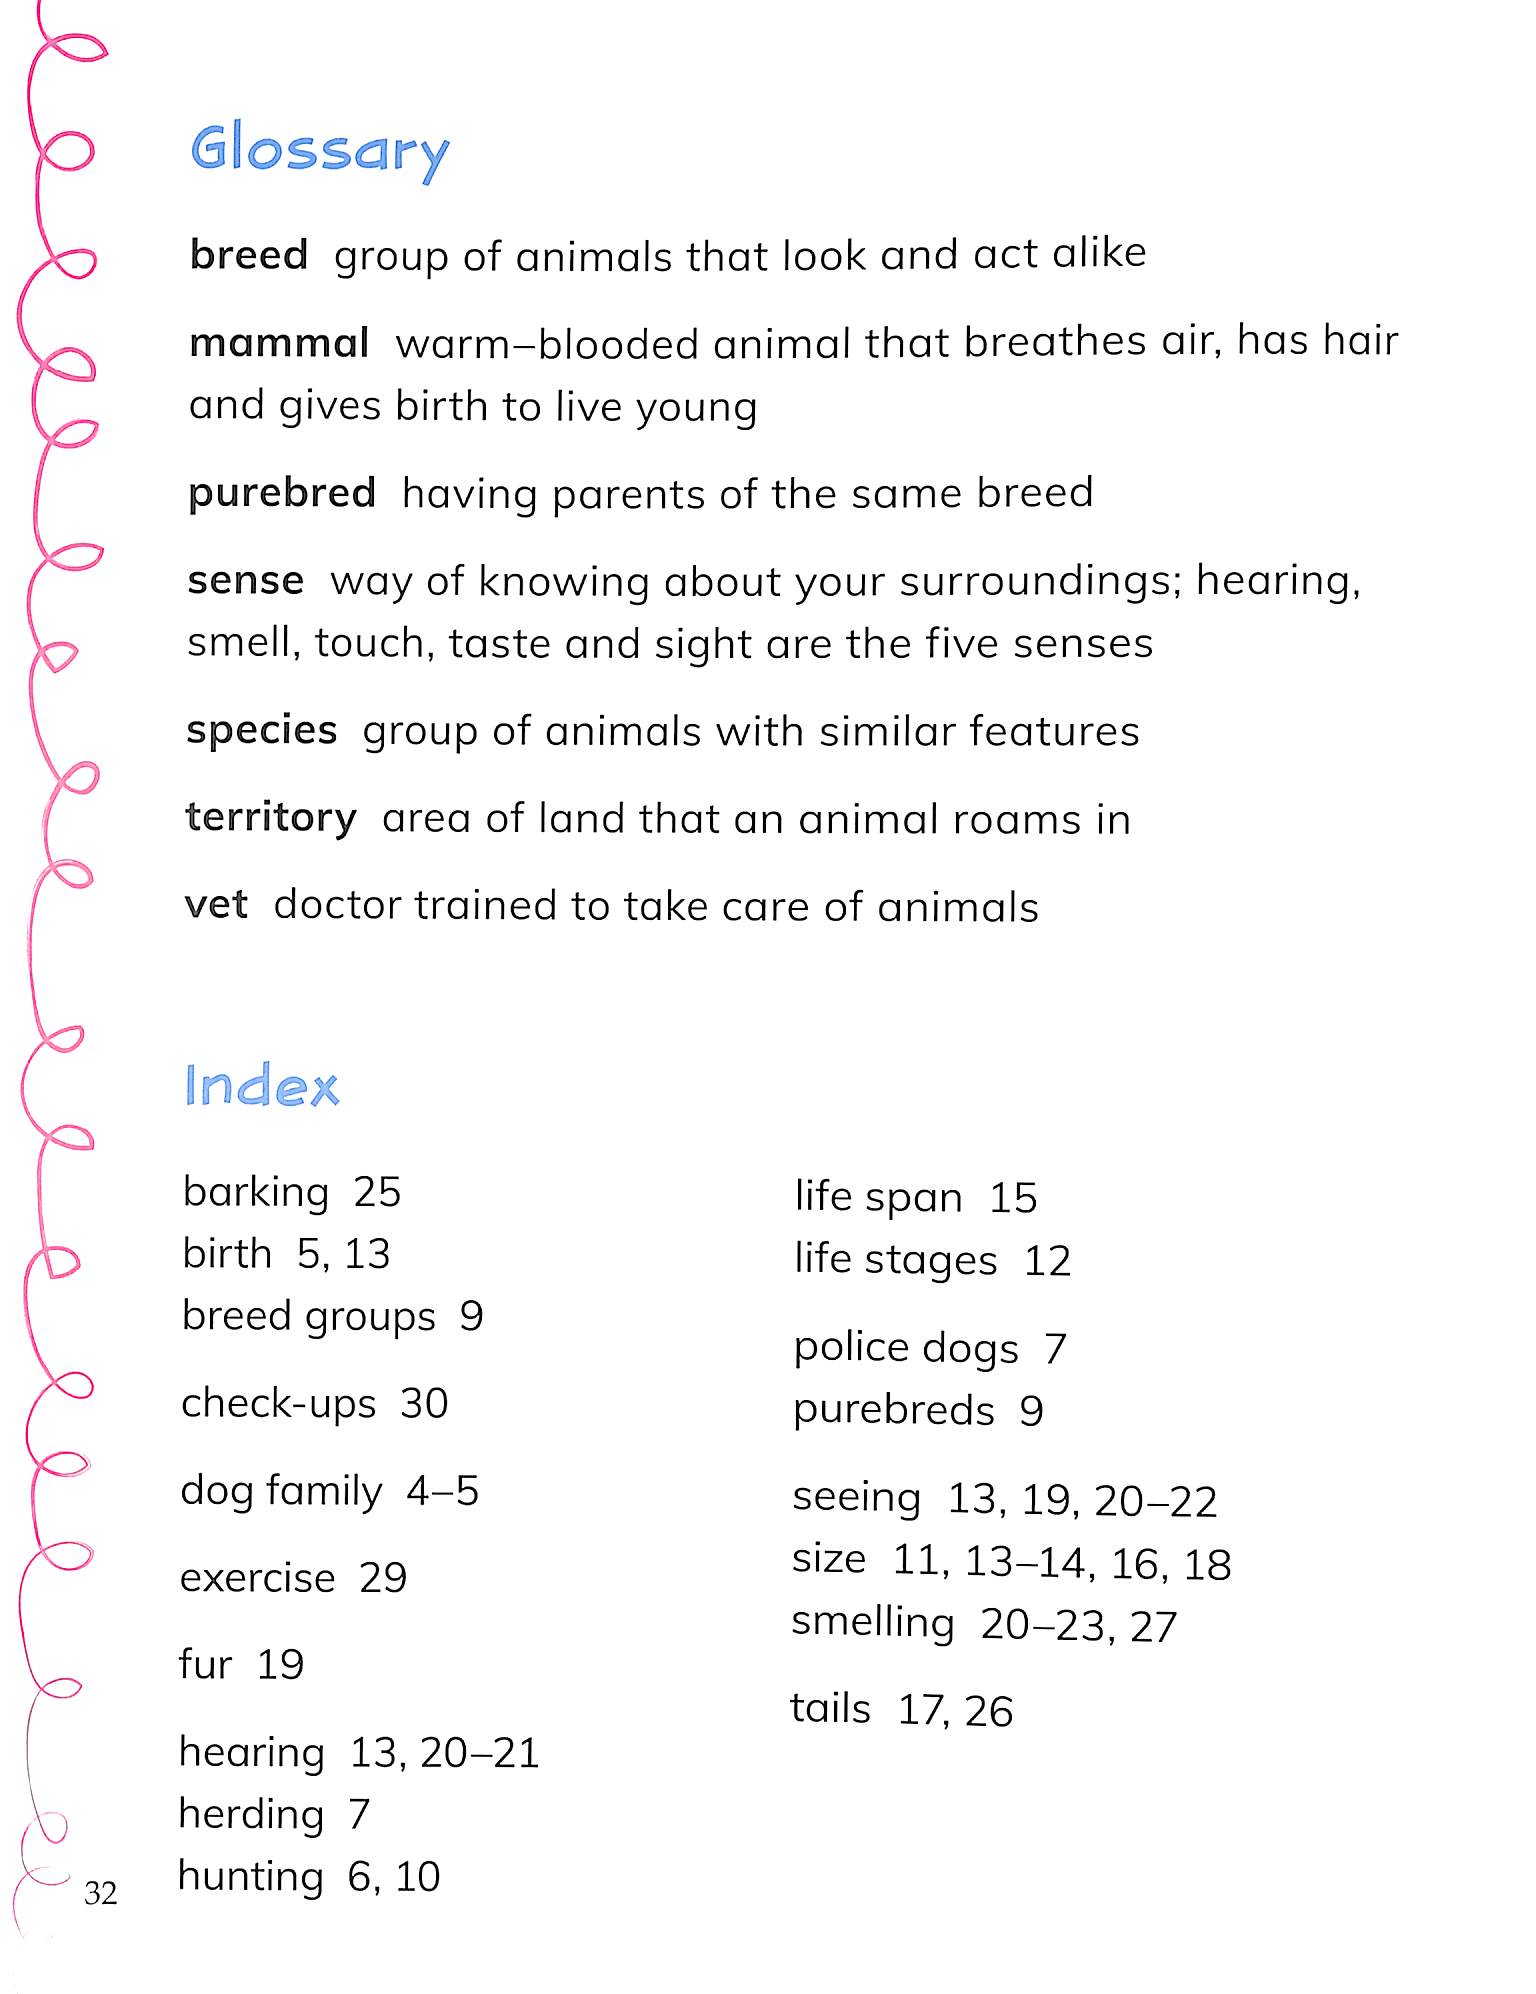 Glossary
breed group of animals that look and act alike
mammal warm–blooded animal that breathes air, has hair
and gives birth to live young
purebred having parents of the same breed
sense way of knowing about your surroundings; hearing,
smell, touch, taste and sight are the five senses
species group of animals with similar features
territory area of land that an animal roams in
vet doctor trained to take care of animals
Index
barking 25
birth 5, 13
breed groups 9
check-ups 30
dog family 4–5
exercise 29
fur 19
hearing 13, 20–21
herding 7
hunting 6, 10
life span 15
life stages 12
police dogs 7
purebreds 9
seeing 13, 19, 20–22
size 11, 13–14, 16, 18
smelling 20–23, 27
tails 17, 26
32